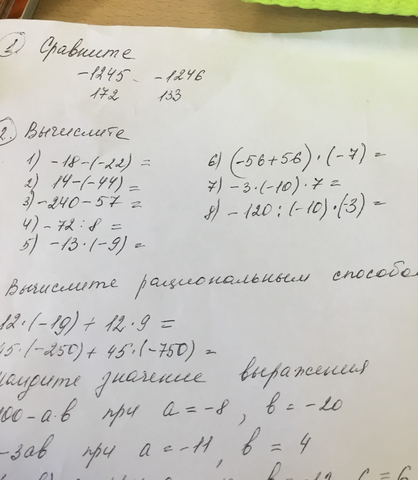 1. Сравните
-1245 -1246
172 133
2. Вычислите
1) -18-(-22) =
2) 14-(-44) =
3) -240-57 =
4) -72:8 =
5) -13·(-9) =
6) (-56+56)·(-7) =
7) -3·(-10)·7 =
8) -120:(-10)·(-3) =
Вычислите рациональным способом
12·(-19) + 12·9 =
45·(-250) + 45·(-750) =
найдите значение выражения
100-а·в при а = -8, в = -20
-3ав при а = -11, в = 4